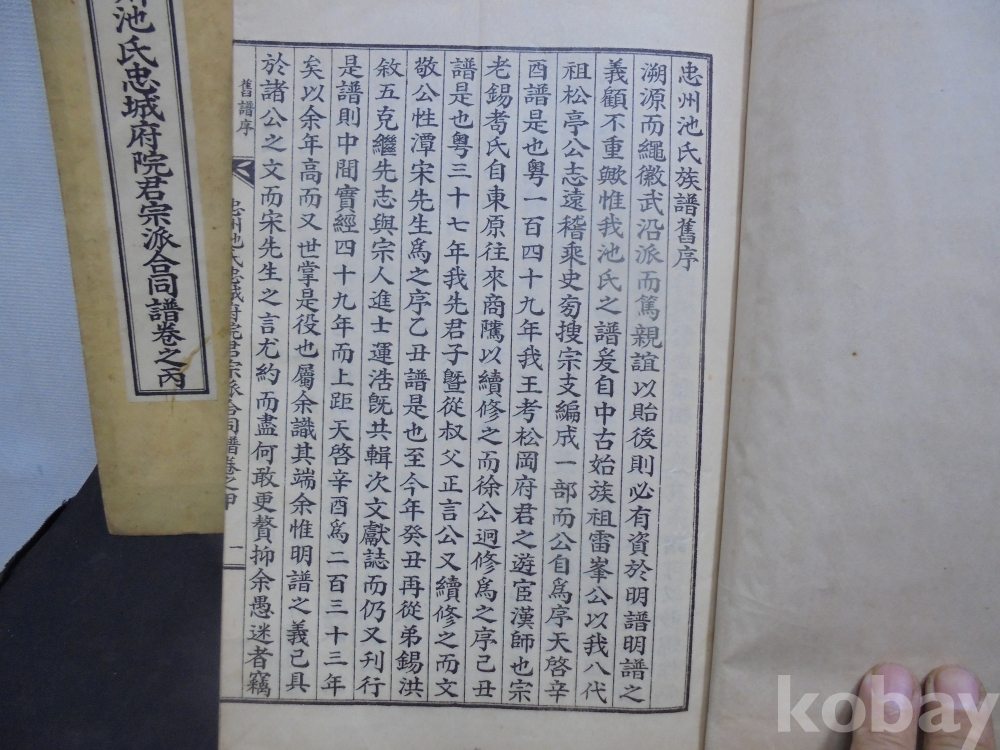 忠州池氏族譜舊序
溯源而繩徽武沿派而篤親誼以貽後則必有資於明譜明譜之
義顧不重歟惟我池氏之譜爰自中古始族祖雷峯公以我八代
祖松亭公志遠稽乘史旁搜宗支編成一部而公自爲序天啓辛
酉譜是也粤一百四十九年我王考松岡府君之遊宦漢師也宗
老錫耈氏自東原往來商隲以續修之而徐公迥修爲之序己丑
譜是也粤三十七年我先君子曁從叔父正言公又續修之而文
敬公性潭宋先生爲之序乙丑譜是也至今年癸丑再從弟錫洪
敘五克繼先志與宗人進士運浩旣共輯次文獻誌而仍又刊行
是譜則中間實經四十九年而上距天啓辛酉爲二百三十三年
矣以余年高而又世掌是役也屬余識其端余惟明譜之義已具
於諸公之文而宋先生之言尤約而盡何敢更贅抑余愚迷者竊
舊譜序
忠州池氏忠城府院君宗派合同譜卷之甲
一
池氏忠城府院君宗派合同譜卷之丙
kobay